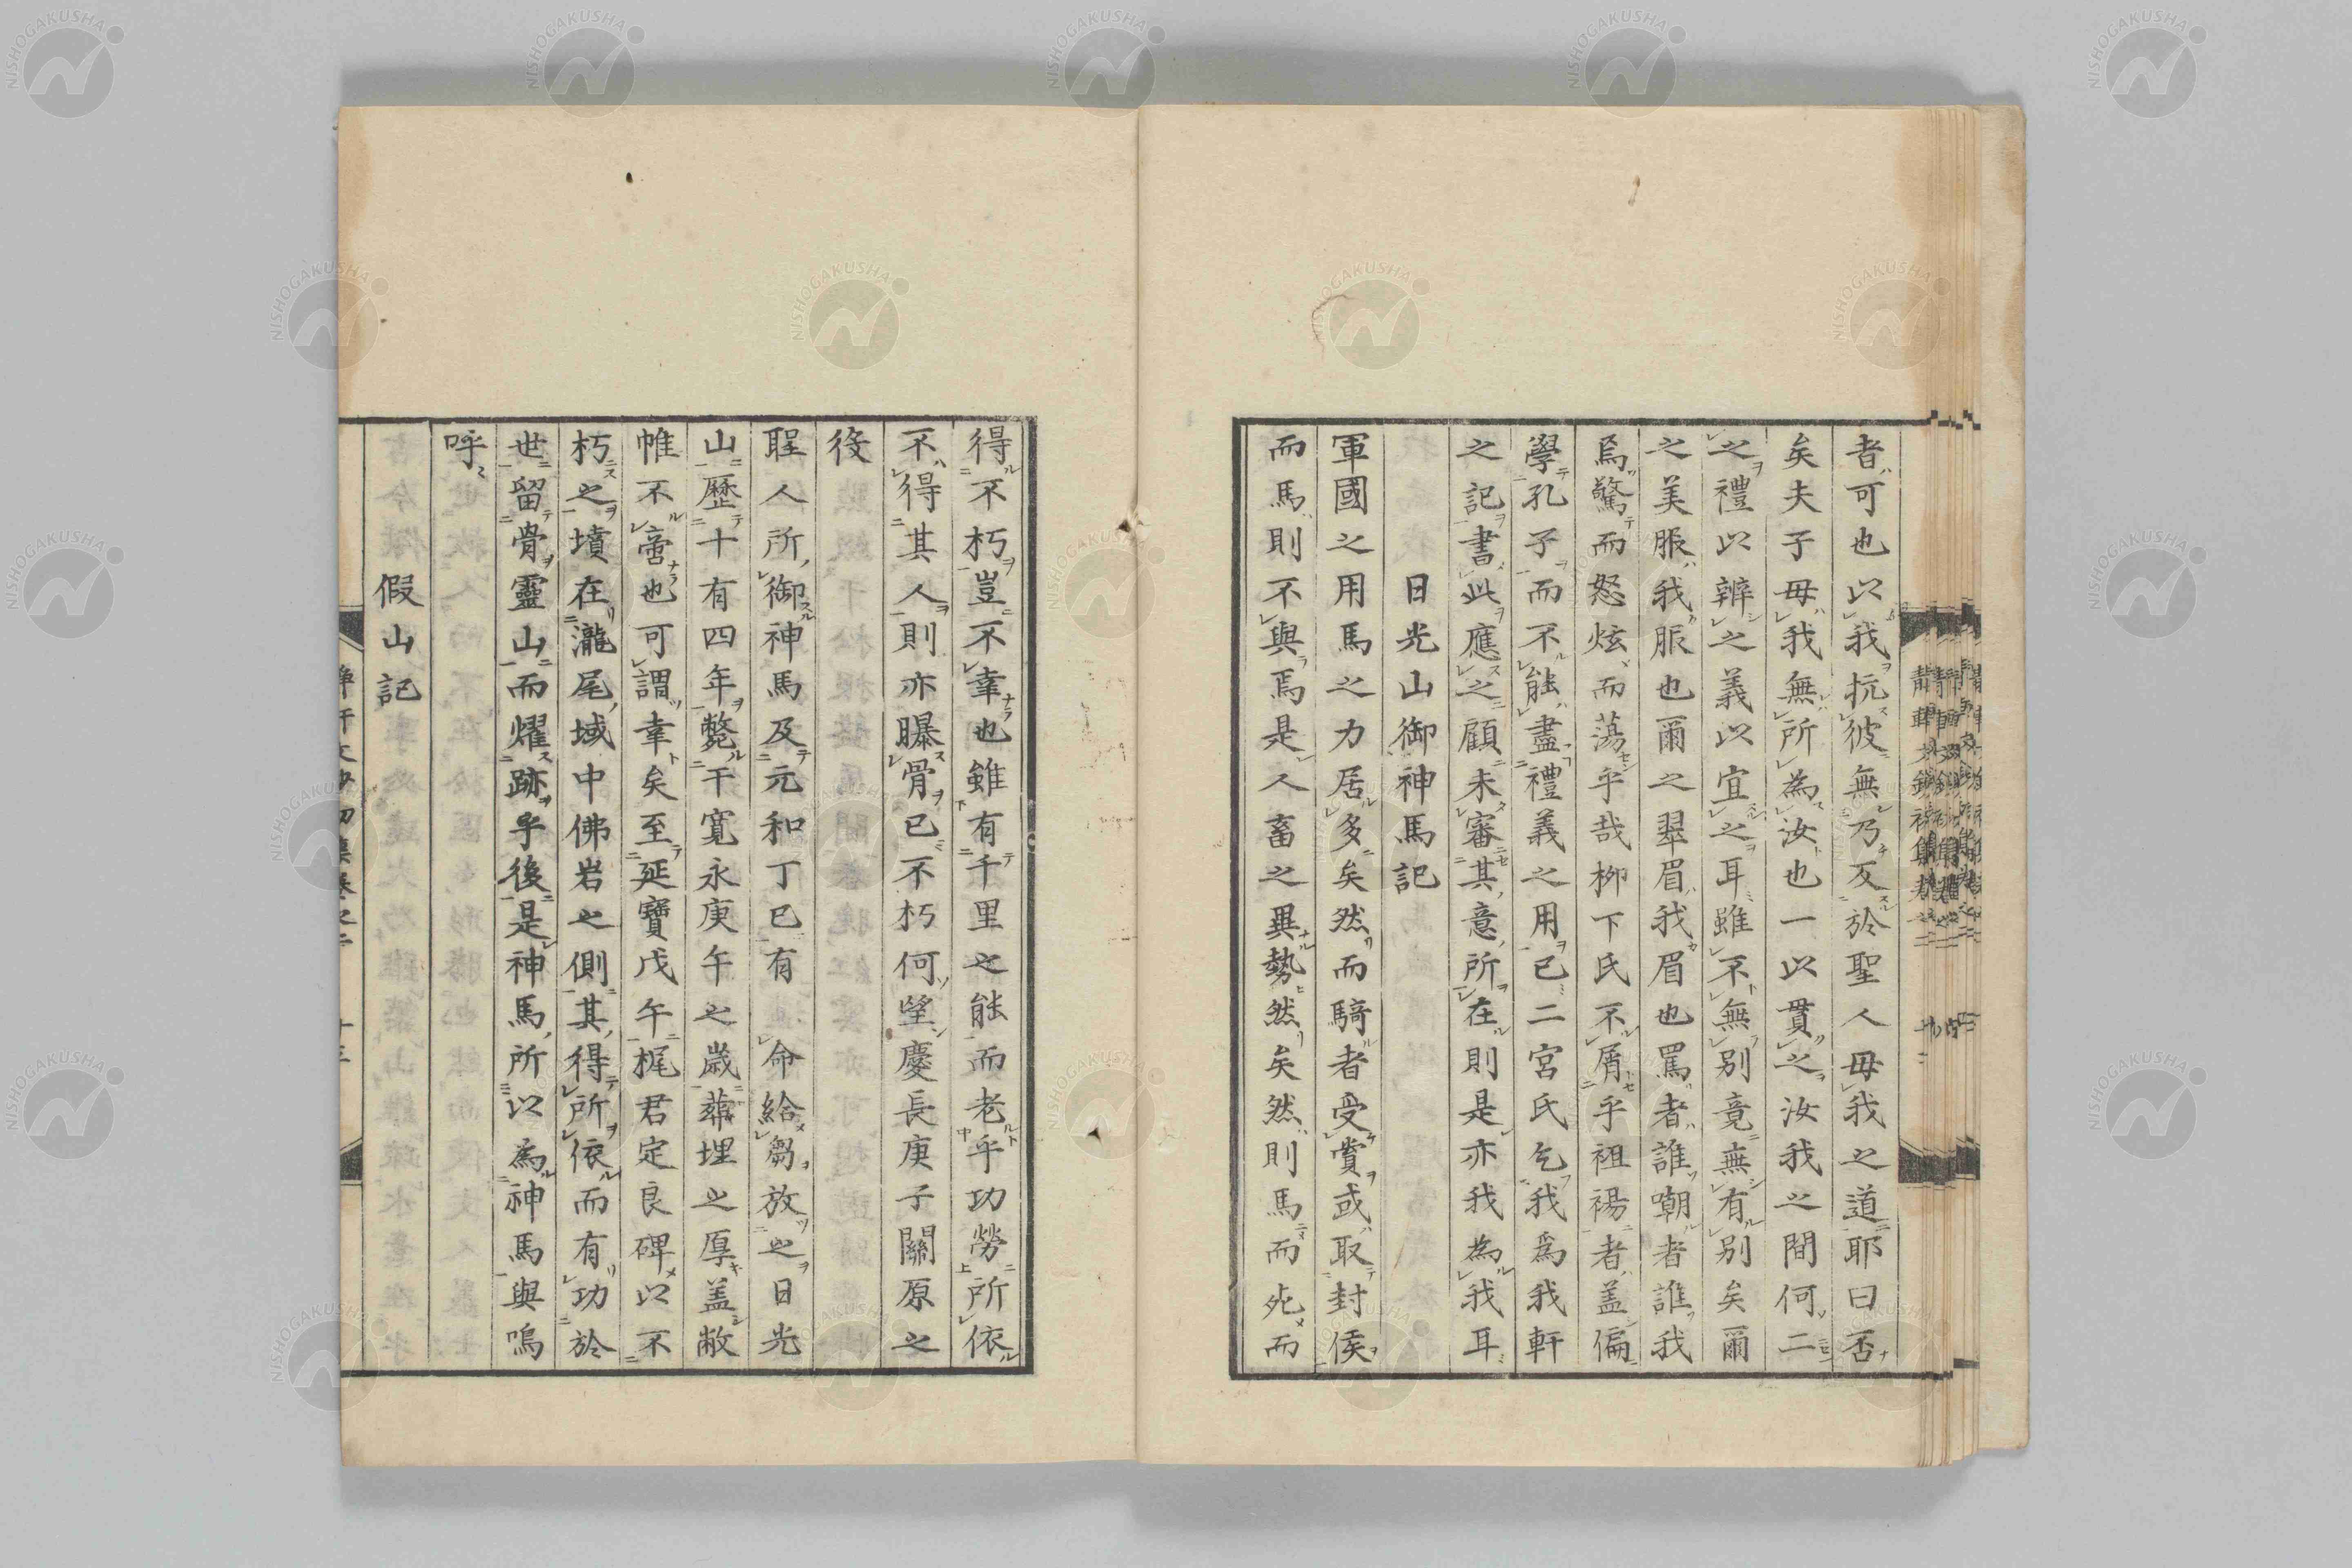 者可也以我抗彼無乃反於聖人毋我之道耶曰否
矣夫子毋我無所為汝也一以貫之汝我之間何二
之禮以辨之義以宜之耳雖不無別竟無有別矣爾
之美服我服也爾之翠眉我眉也罵者誰嘲者誰我
焉驚而怒炫而蕩乎哉柳下氏不屑乎袒裼者盖偏
學孔子而不能盡禮義之用已二宮氏乞我爲我軒
之記書此應之顧未審其意所在則是亦我為我耳
日光山御神馬記
軍國之用馬之力居多矣然而騎者受賞或取封侯
而馬則不與焉是人畜之異勢然矣然則馬而死而
得不朽豈不幸也雖有千里之能而老乎功勞所依
不得其人則亦曝骨已不朽何望慶長庚子關原之
役
聖人所御神馬及元和丁巳有 命給芻放之日光
山歷十有四年斃于寬永庚午之歲葬埋之厚盖敝
帷不啻也可謂幸矣至延寶戊午梶君定良碑以不
朽之墳在瀧尾域中佛岩之側其得所依而有功於
世留骨靈山而燿跡乎後是神馬所以為神馬與嗚
呼
假山記